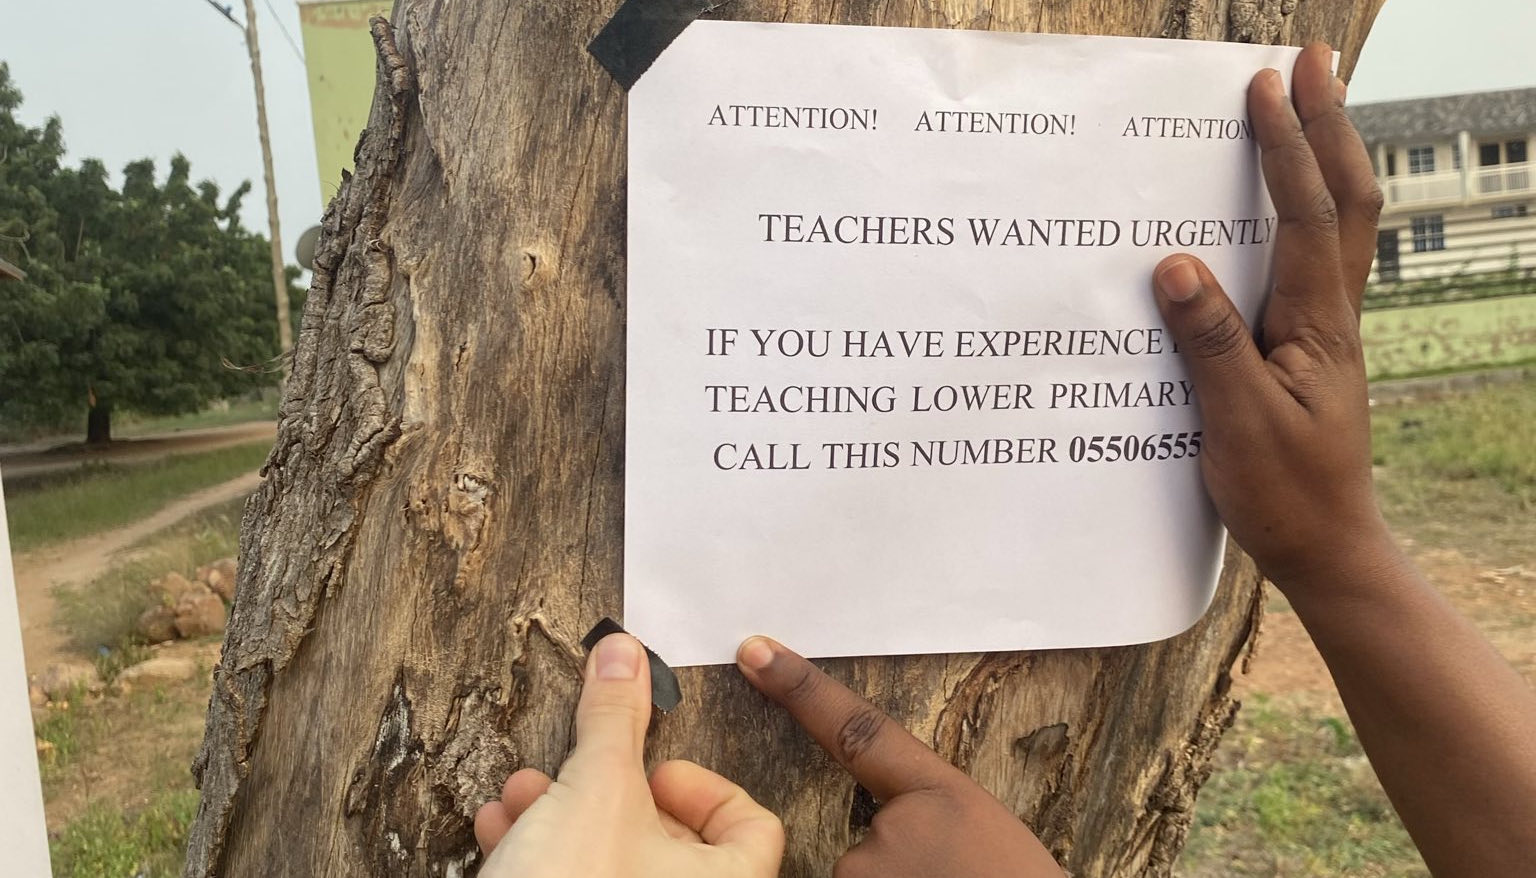 ATTENTION! ATTENTION! ATTENTION
TEACHERS WANTED URGENTLY
IF YOU HAVE EXPERIENCE
TEACHING LOWER PRIMARY
CALL THIS NUMBER 05506555